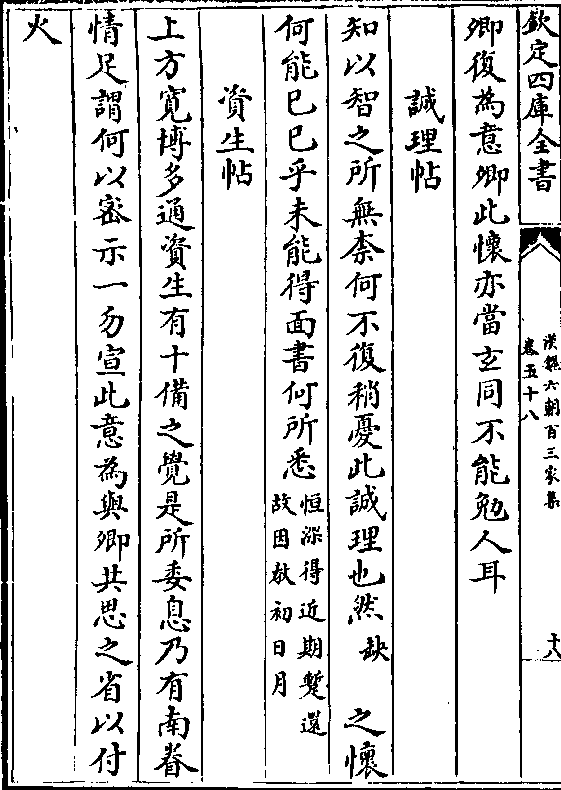 欽定四庫全書
漢魏六朝百三家集
卷五十八
十八
卿復為意卿此懷亦當玄同不能勉人耳
誠理帖
知以智之所無柰何不復稍憂此誠理也然缺之懷
何能已已乎未能得面書何所悉恒深得近期蹔還
故因献初日月
資生帖
上方寬博多通資生有十備之覺是所委息乃有南眷
情足謂何以密示一勿宣此意為與卿共思之省以付
火